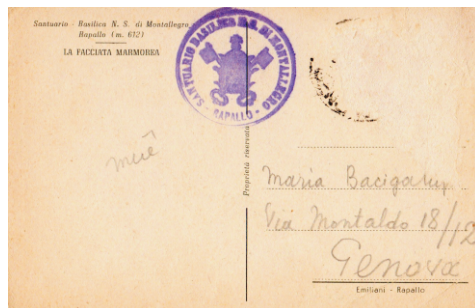 Santuario - Basilica N. S. di Montallegro
Rapallo (m. 612)
LA FACCIATA MARMOREA
SANTUARIO BASILICA N. S. DI MONTALLEGRO
- RAPALLO -
Proprietà riservata
Maria Bacigalup
Via Montaldo 18/12
Genova
Emiliani - Rapallo